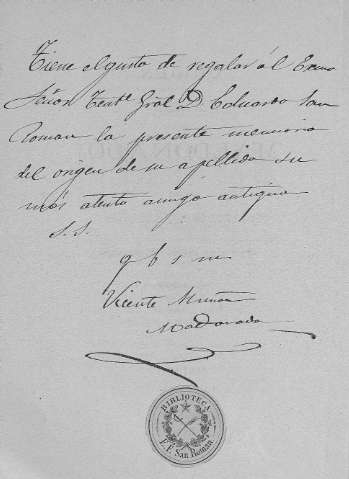 Tiene el gusto de regalar ál Excmo
Señor Tente Gral D. Eduardo San
Roman la presente memoria
del origen de su apellido su
más atento amigo antiguo
S. S.
q b s m
Vicente Muñoz
Maldonado
BIBLIOTECA
E. F. San Roman